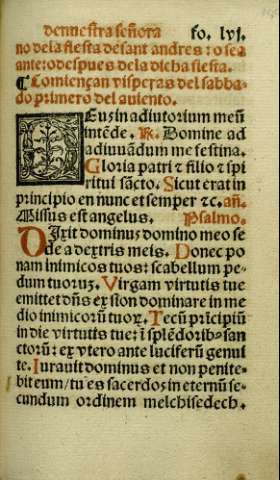 denuestra señora fo. lvj.
no dela fiesta de sant andres: o sea
ante: o despues dela dicha fiesta.
¶ Comiençan visperas del sabba-
do primero del auiento.
DEus in adiutorium meũ
intẽde. ℟. Domine ad
adiuuãdum me festina.
Gloria patri ⁊ filio ⁊ spi
ritui sãcto. Sicut erat in
principio en nunc et semper ⁊c. añ.
Missus est angelus. Psalmo.
DIxit dominus domino meo se
de a dextris meis. Donec po
nam inimicos tuos: scabellum pe-
dum tuoruʒ. Virgam virtutis tue
emittet dñs ex sion dominare in me
dio inimicorũ tuoꝝ. Tecũ prĩcipiũ
in die virtutis tue: ĩ splẽdorib⁹ san
ctorũ: ex vtero ante luciferũ genui
te. Iurauit dominus et non penite-
bit eum/tu es sacerdos in eternũ se-
cundum ordinem melchisedech.